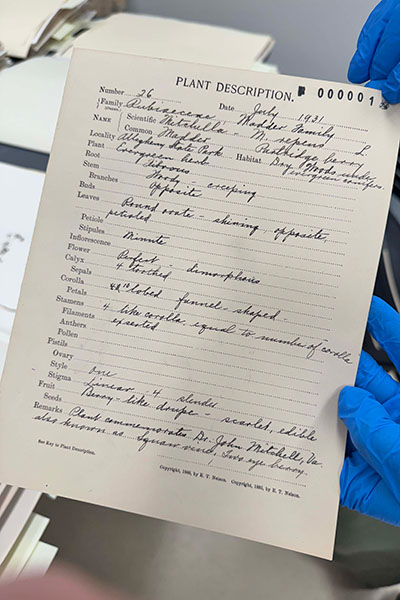 PLANT DESCRIPTION. 000001
Number 26 Date July 1931
Family Rubiaceae - Madder Family
NAME Scientific Mitchella - M. repens L
Common Madder Partridge berry
Locality Allegheny State Park Habitat Dry Woods under
Plant Evergreen herb evergreen conifers
Root fibrous
Stem Woody - creeping
Branches opposite
Buds
Leaves Round ovate - shining opposite,
Petiole petioled
Stipules Minute
Inflorescence
Flower Perfect - dimorphous
Calyx 4 toothed
Sepals
Corolla lobed funnel-shaped
Petals
Stamens 4 like corolla, equal to number of "corolla"
Filaments exserted
Anthers
Pollen
Pistils
Ovary
Style one
Stigma Linear - 4 slender
Fruit Berry-like drupe - scarlet, edible
Seeds
Remarks Plant commemorates Dr. John Mitchell, Va.
also known as Squaw vine, Two eye berry.
See Key to Plant Description.
Copyright, 1886, by E. T. Nelson. Copyright, 1895, by E. T. Nelson.